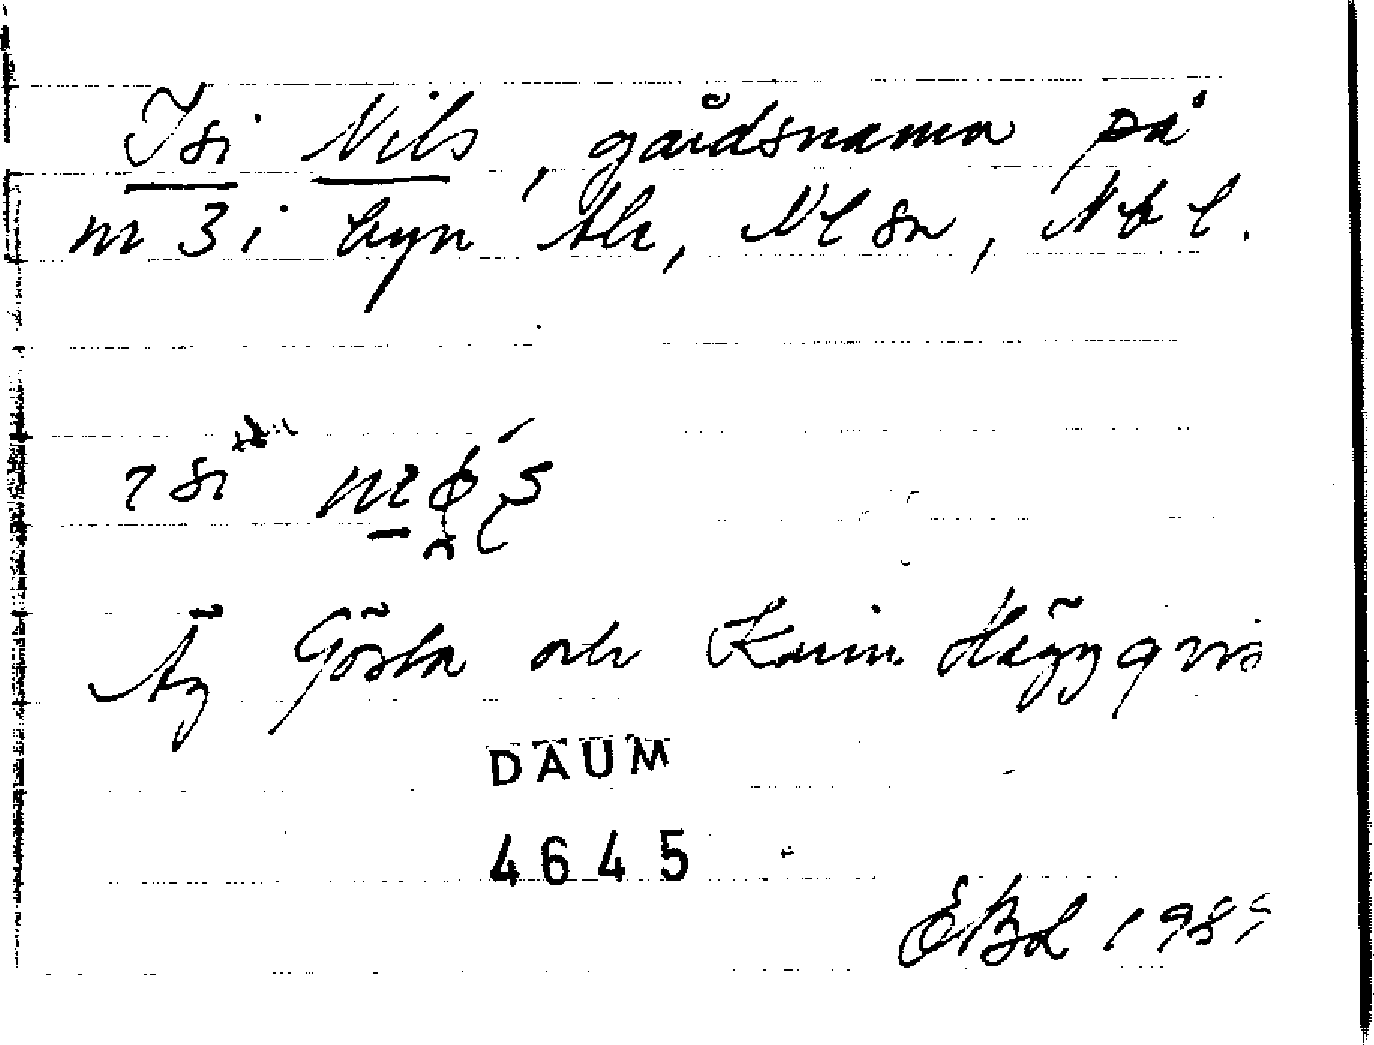 Isi Nils, gårdsnamn på
nr 3 i byn Ale, Nl sn, Nbt.
Äg Gösta och Karin Häggqvis
DAUM
4645
EBL 1985